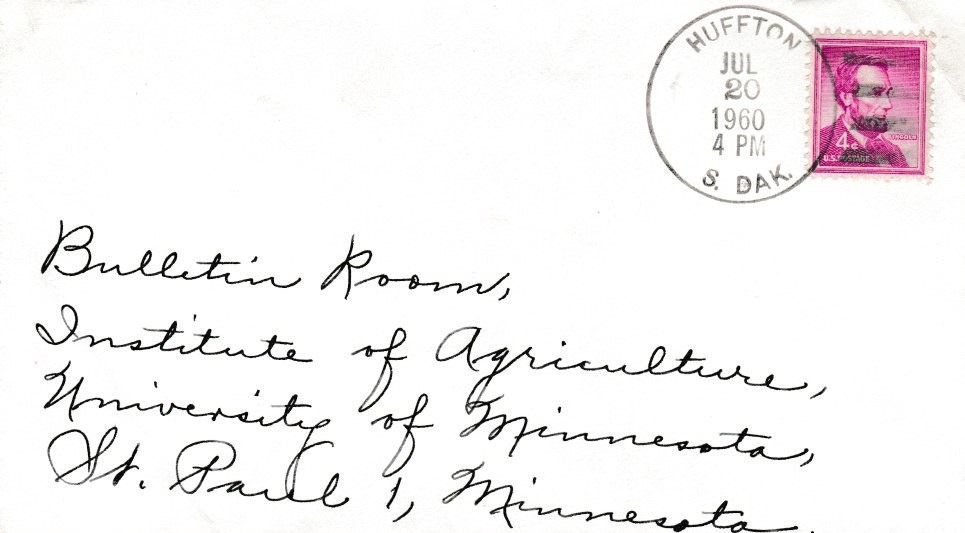 HUFFTON
JUL
20
1960
4 PM
S. DAK.
4¢
LINCOLN
U.S. POSTAGE
Bulletin Room,
Institute of Agriculture,
University of Minnesota,
St. Paul 1, Minnesota.